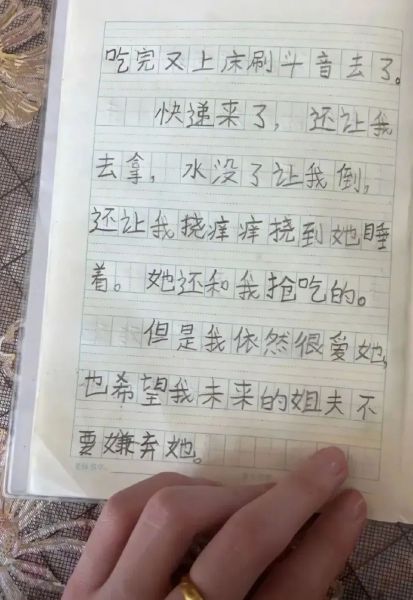 吃完又上床刷斗音去了。
快递来了，还让我
去拿，水没了让我倒，
还让我挠痒痒挠到她睡
着。她还和我抢吃的。
但是我依然很爱她，
也希望我未来的姐夫不
要嫌弃她。